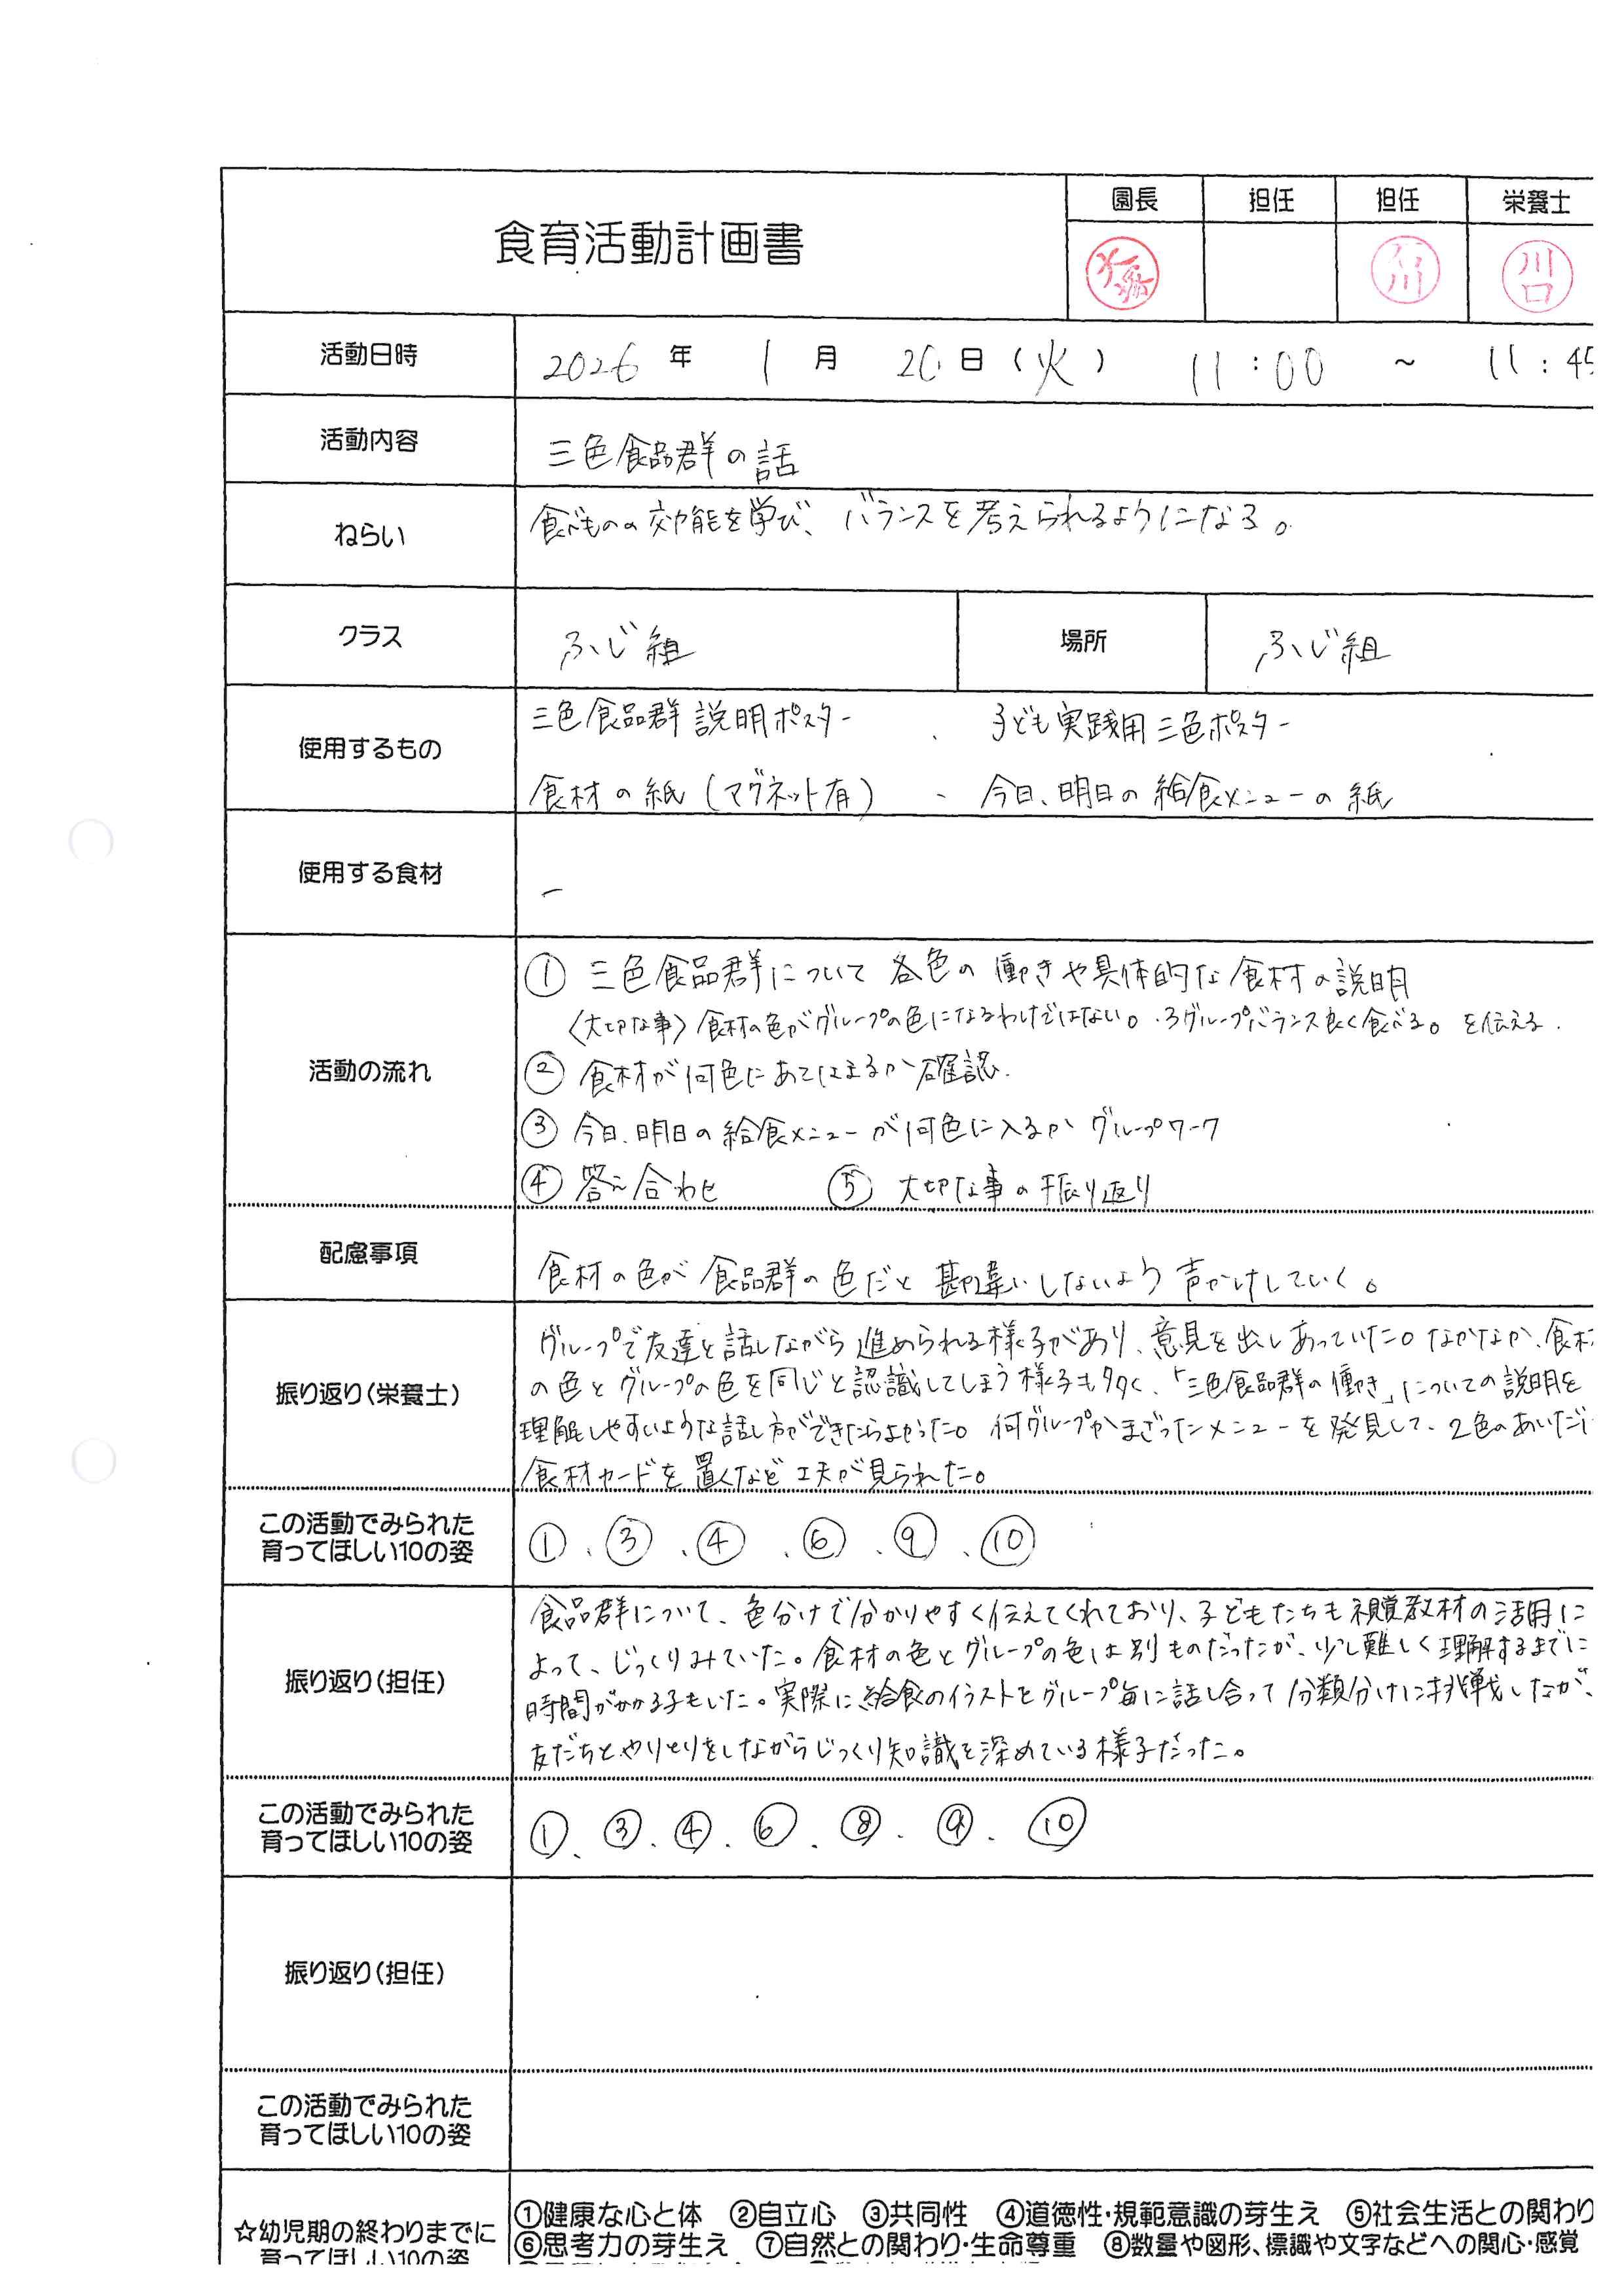 食育活動計画書
園長 担任 担任 栄養士
大塚 石川 川口
活動日時 2026年 1月 20日(火) 11:00 ~ 11:45
活動内容 三色食品群の話
ねらい 食べものの効能を学び、バランスを考えられるようになる。
クラス ふじ組 場所 ふじ組
使用するもの 三色食品群説明ポスター 、 子ども実践用三色ポスター
食材の紙(マグネット有) 、 今日、明日の給食メニューの紙
使用する食材 ー
活動の流れ
① 三色食品群について 各色の働きや具体的な食材の説明
〈大切な事〉食材の色がグループの色になるわけではない。・3グループバランス良く食べる。を伝える.
② 食材が何色にあてはまるか確認.
③ 今日、明日の給食メニューが何色に入るか グループワーク
④ 答え合わせ ⑤ 大切な事の振り返り
配慮事項 食材の色が食品群の色だと勘違いしないよう声かけしていく。
振り返り(栄養士)
グループで友達と話しながら進められる様子があり、意見を出しあっていた。なかなか、食材
の色とグループの色を同じと認識してしまう様子も多く、「三色食品群の働き」についての説明を
理解しやすいような話し方ができたらよかった。何グループかまざったメニューを発見して、2色のあいだに
食材カードを置くなど工夫が見られた。
この活動でみられた
育ってほしい10の姿
①、③、④、⑥、⑨、⑩
振り返り(担任)
食品群について、色分けで分かりやすく伝えてくれており、子どもたちも視覚教材の活用に
よって、じっくりみていた。食材の色とグループの色は別ものだったが、少し難しく理解するまでに
時間がかかる子もいた。実際に給食のイラストをグループ毎に話し合って分類分けに挑戦したが、
友だちとやりとりをしながらじっくり知識を深めている様子だった。
この活動でみられた
育ってほしい10の姿
①、③、④、⑥、⑧、⑨、⑩
振り返り(担任)
この活動でみられた
育ってほしい10の姿
☆幼児期の終わりまでに
育ってほしい10の姿
①健康な心と体 ②自立心 ③共同性 ④道徳性・規範意識の芽生え ⑤社会生活との関わり
⑥思考力の芽生え ⑦自然との関わり・生命尊重 ⑧数量や図形、標識や文字などへの関心・感覚